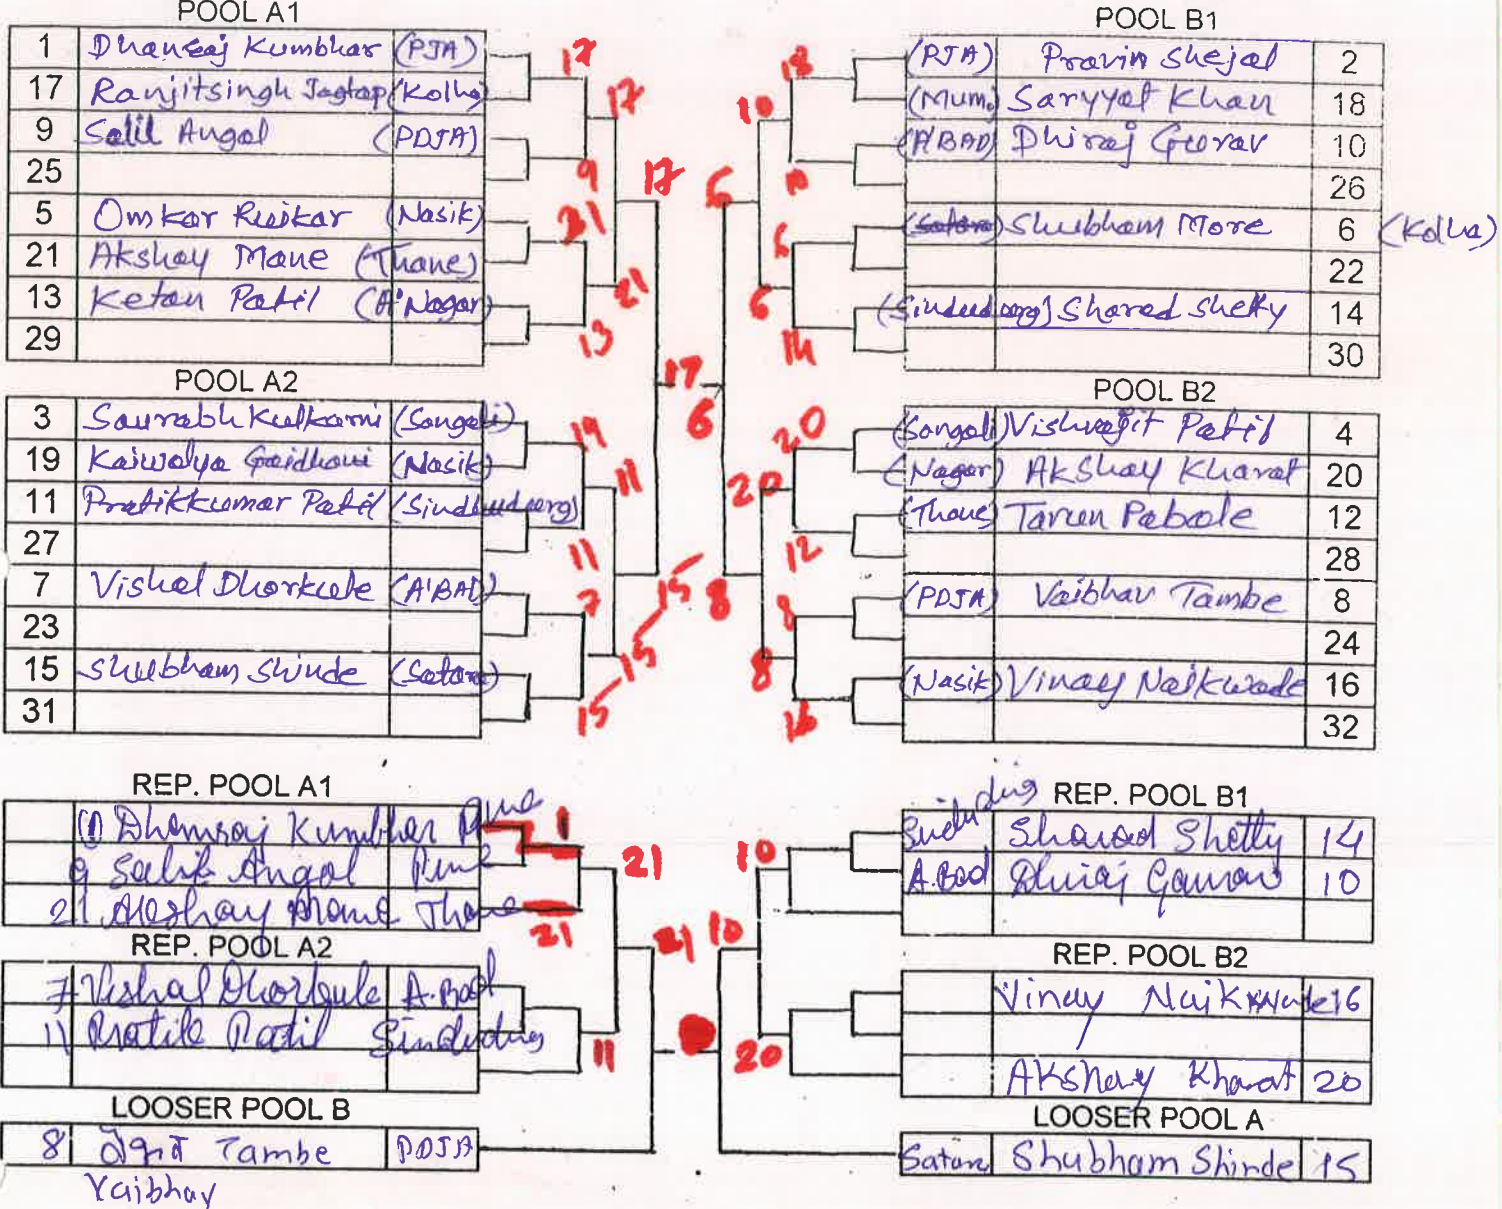 POOL A1
1 Dhansaj Kumbhar (PJA)
17 Ranjitsingh Jagtap (Kolha)
9 Salil Angal (PDJA)
25
5 Omkar Ruikar (Nasik)
21 Akshay Mane (Thane)
13 Ketan Patil (A'Nagar)
29
POOL A2
3 Saurabh Kulkarni (Sangali)
19 Kaiwalya Gaidhani (Nasik)
11 Pratikkumar Patil (Sindhudurg)
27
7 Vishal Dhorkule (A'BAD)
23
15 Shubham Shinde (Satara)
31
17
17
9
17
21
21
13
17
19
11
11
7
15
15
15
POOL B1
(PJA) Pravin Shejal 2
(Mum.) Saryyat Khan 18
(A'BAD) Dhiraj Gurav 10
26
(Satara) Shubham More 6 (Kolha)
22
(Sindudurg) Sharad Shetty 14
30
POOL B2
(Sangali) Vishvajit Patil 4
(Nagar) Akshay Kharat 20
(Thane) Tarun Pabale 12
28
(PDJA) Vaibhav Tambe 8
24
(Nasik) Vinay Naikwade 16
32
18
10
10
6
6
6
14
6
20
20
12
8
8
8
16
REP. POOL A1
(1) Dhansaj Kumbhar Pune
9 Salil Angal Pune
21 Akshay Mane Thane
REP. POOL A2
7 Vishal Dhorkule A.Bad
11 Pratik Patil Sindudurg
LOOSER POOL B
8 वैभव Tambe PDJA
Vaibhav
1
21
21
21
11
REP. POOL B1
Sindudurg Sharad Shetty 14
A.Bad Dhiraj Gaurav 10
REP. POOL B2
Vinay Naikwade 16
Akshay Kharat 20
LOOSER POOL A
Satara Shubham Shinde 15
10
10
20